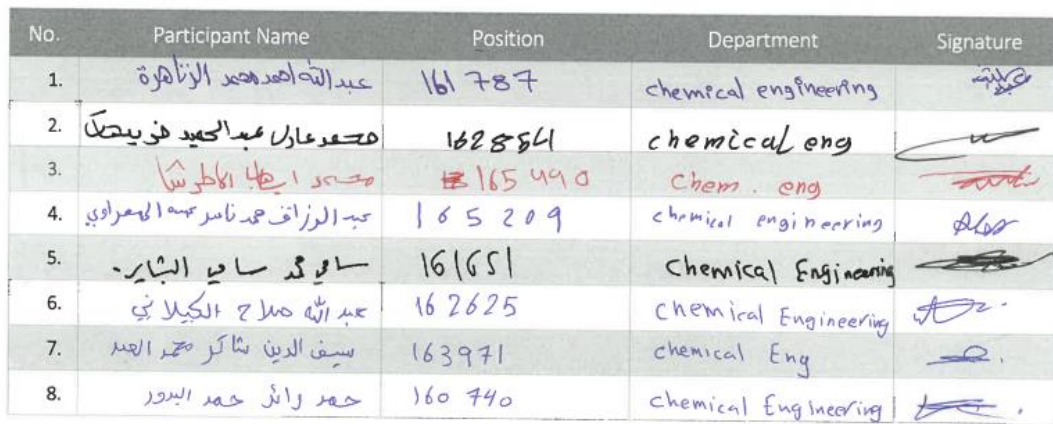 No. Participant Name Position Department Signature
1. عبدالله احمد محمد الزناهرة 161 787 chemical engineering
2. محمد عادل عبدالحميد 162854 chemical eng
3. محمد 165490 Chem. eng
4. عبد الرزاق محمد ناصر 165209 chemical engineering
5. سامي محمد سامي 161651 Chemical Engineering
6. عبد الله صلاح الكيلاني 162625 Chemical Engineering
7. سيف الدين شاكر محمد العبد 163971 chemical Eng
8. حمد رائد حمد البدور 160740 chemical Engineering